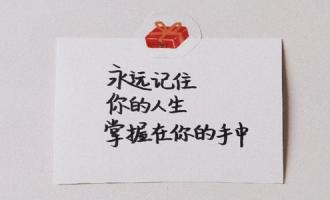 永远记住
你的人生
掌握在你的手中